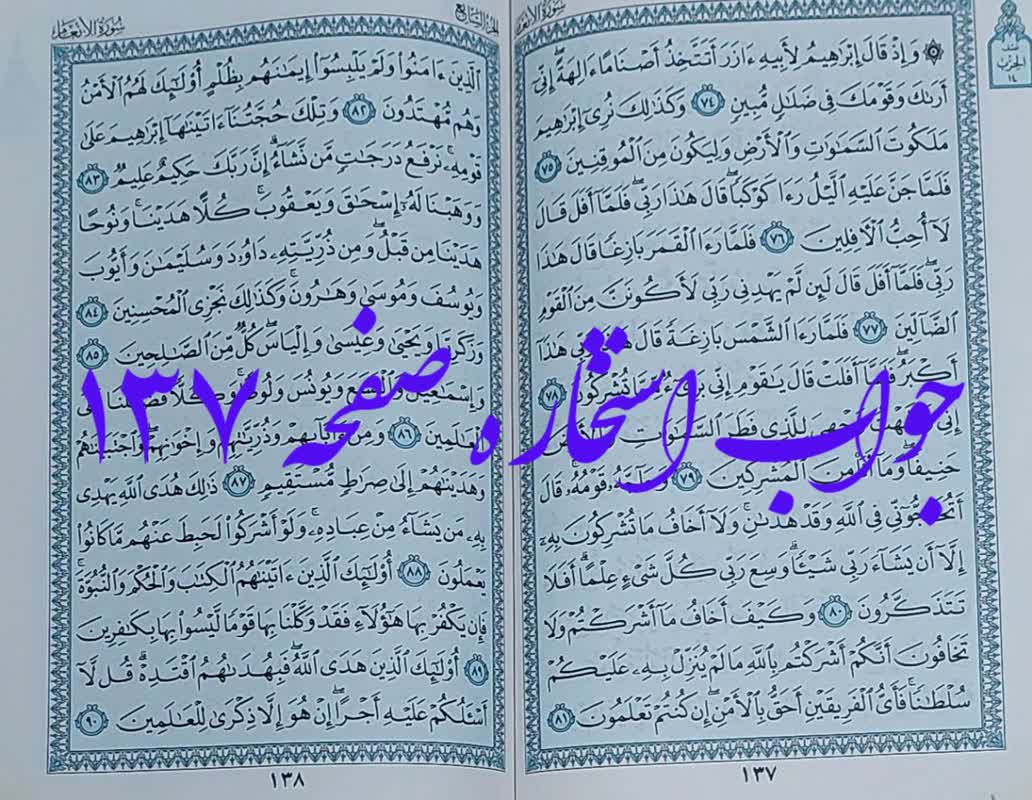 سُورَةُ الأَنْعَامِ
الحِزْبِ
١٤
وَإِذْ قَالَ إِبْرَٰهِيمُ لِأَبِيهِ ءَازَرَ أَتَتَّخِذُ أَصْنَامًا ءَالِهَةً إِنِّىٓ
أَرَىٰكَ وَقَوْمَكَ فِى ضَلَٰلٍ مُّبِينٍ ٧٤ وَكَذَٰلِكَ نُرِىٓ إِبْرَٰهِيمَ
مَلَكُوتَ ٱلسَّمَٰوَٰتِ وَٱلْأَرْضِ وَلِيَكُونَ مِنَ ٱلْمُوقِنِينَ ٧٥
فَلَمَّا جَنَّ عَلَيْهِ ٱلَّيْلُ رَءَا كَوْكَبًا قَالَ هَٰذَا رَبِّى فَلَمَّآ أَفَلَ قَالَ
لَآ أُحِبُّ ٱلْءَافِلِينَ ٧٦ فَلَمَّا رَءَا ٱلْقَمَرَ بَازِغًا قَالَ هَٰذَا
رَبِّى فَلَمَّآ أَفَلَ قَالَ لَئِن لَّمْ يَهْدِنِى رَبِّى لَأَكُونَنَّ مِنَ ٱلْقَوْمِ
ٱلضَّآلِّينَ ٧٧ فَلَمَّا رَءَا ٱلشَّمْسَ بَازِغَةً قَالَ هَٰذَا رَبِّى هَٰذَآ
أَكْبَرُ فَلَمَّآ أَفَلَتْ قَالَ يَٰقَوْمِ إِنِّى بَرِىٓءٌ مِّمَّا تُشْرِكُونَ ٧٨
إِنِّى وَجَّهْتُ وَجْهِىَ لِلَّذِى فَطَرَ ٱلسَّمَٰوَٰتِ وَٱلْأَرْضَ
حَنِيفًا وَمَآ أَنَا۠ مِنَ ٱلْمُشْرِكِينَ ٧٩ وَحَآجَّهُۥ قَوْمُهُۥ قَالَ
أَتُحَٰٓجُّوٓنِّى فِى ٱللَّهِ وَقَدْ هَدَىٰنِ وَلَآ أَخَافُ مَا تُشْرِكُونَ بِهِۦٓ
إِلَّآ أَن يَشَآءَ رَبِّى شَيْـًٔا وَسِعَ رَبِّى كُلَّ شَىْءٍ عِلْمًا أَفَلَا
تَتَذَكَّرُونَ ٨٠ وَكَيْفَ أَخَافُ مَآ أَشْرَكْتُمْ وَلَا
تَخَافُونَ أَنَّكُمْ أَشْرَكْتُم بِٱللَّهِ مَا لَمْ يُنَزِّلْ بِهِۦ عَلَيْكُمْ
سُلْطَٰنًا فَأَىُّ ٱلْفَرِيقَيْنِ أَحَقُّ بِٱلْأَمْنِ إِن كُنتُمْ تَعْلَمُونَ ٨١
١٣٧
الجُزْءُ السَّابِعُ
سُورَةُ الأَنْعَامِ
ٱلَّذِينَ ءَامَنُوا۟ وَلَمْ يَلْبِسُوٓا۟ إِيمَٰنَهُم بِظُلْمٍ أُو۟لَٰٓئِكَ لَهُمُ ٱلْأَمْنُ
وَهُم مُّهْتَدُونَ ٨٢ وَتِلْكَ حُجَّتُنَآ ءَاتَيْنَٰهَآ إِبْرَٰهِيمَ عَلَىٰ
قَوْمِهِۦ نَرْفَعُ دَرَجَٰتٍ مَّن نَّشَآءُ إِنَّ رَبَّكَ حَكِيمٌ عَلِيمٌ ٨٣
وَوَهَبْنَا لَهُۥٓ إِسْحَٰقَ وَيَعْقُوبَ كُلًّا هَدَيْنَا وَنُوحًا
هَدَيْنَا مِن قَبْلُ وَمِن ذُرِّيَّتِهِۦ دَاوُۥدَ وَسُلَيْمَٰنَ وَأَيُّوبَ
وَيُوسُفَ وَمُوسَىٰ وَهَٰرُونَ وَكَذَٰلِكَ نَجْزِى ٱلْمُحْسِنِينَ ٨٤
وَزَكَرِيَّا وَيَحْيَىٰ وَعِيسَىٰ وَإِلْيَاسَ كُلٌّ مِّنَ ٱلصَّٰلِحِينَ ٨٥
وَإِسْمَٰعِيلَ وَٱلْيَسَعَ وَيُونُسَ وَلُوطًا وَكُلًّا فَضَّلْنَا عَلَى
ٱلْعَٰلَمِينَ ٨٦ وَمِنْ ءَابَآئِهِمْ وَذُرِّيَّٰتِهِمْ وَإِخْوَٰنِهِمْ وَٱجْتَبَيْنَٰهُمْ
وَهَدَيْنَٰهُمْ إِلَىٰ صِرَٰطٍ مُّسْتَقِيمٍ ٨٧ ذَٰلِكَ هُدَى ٱللَّهِ يَهْدِى
بِهِۦ مَن يَشَآءُ مِنْ عِبَادِهِۦ وَلَوْ أَشْرَكُوا۟ لَحَبِطَ عَنْهُم مَّا كَانُوا۟
يَعْمَلُونَ ٨٨ أُو۟لَٰٓئِكَ ٱلَّذِينَ ءَاتَيْنَٰهُمُ ٱلْكِتَٰبَ وَٱلْحُكْمَ وَٱلنُّبُوَّةَ
فَإِن يَكْفُرْ بِهَا هَٰٓؤُلَآءِ فَقَدْ وَكَّلْنَا بِهَا قَوْمًا لَّيْسُوا۟ بِهَا بِكَٰفِرِينَ
٨٩ أُو۟لَٰٓئِكَ ٱلَّذِينَ هَدَى ٱللَّهُ فَبِهُدَىٰهُمُ ٱقْتَدِهْ قُل لَّآ
أَسْـَٔلُكُمْ عَلَيْهِ أَجْرًا إِنْ هُوَ إِلَّا ذِكْرَىٰ لِلْعَٰلَمِينَ ٩٠
١٣٨
جواب استخاره صفحه ۱۳۷